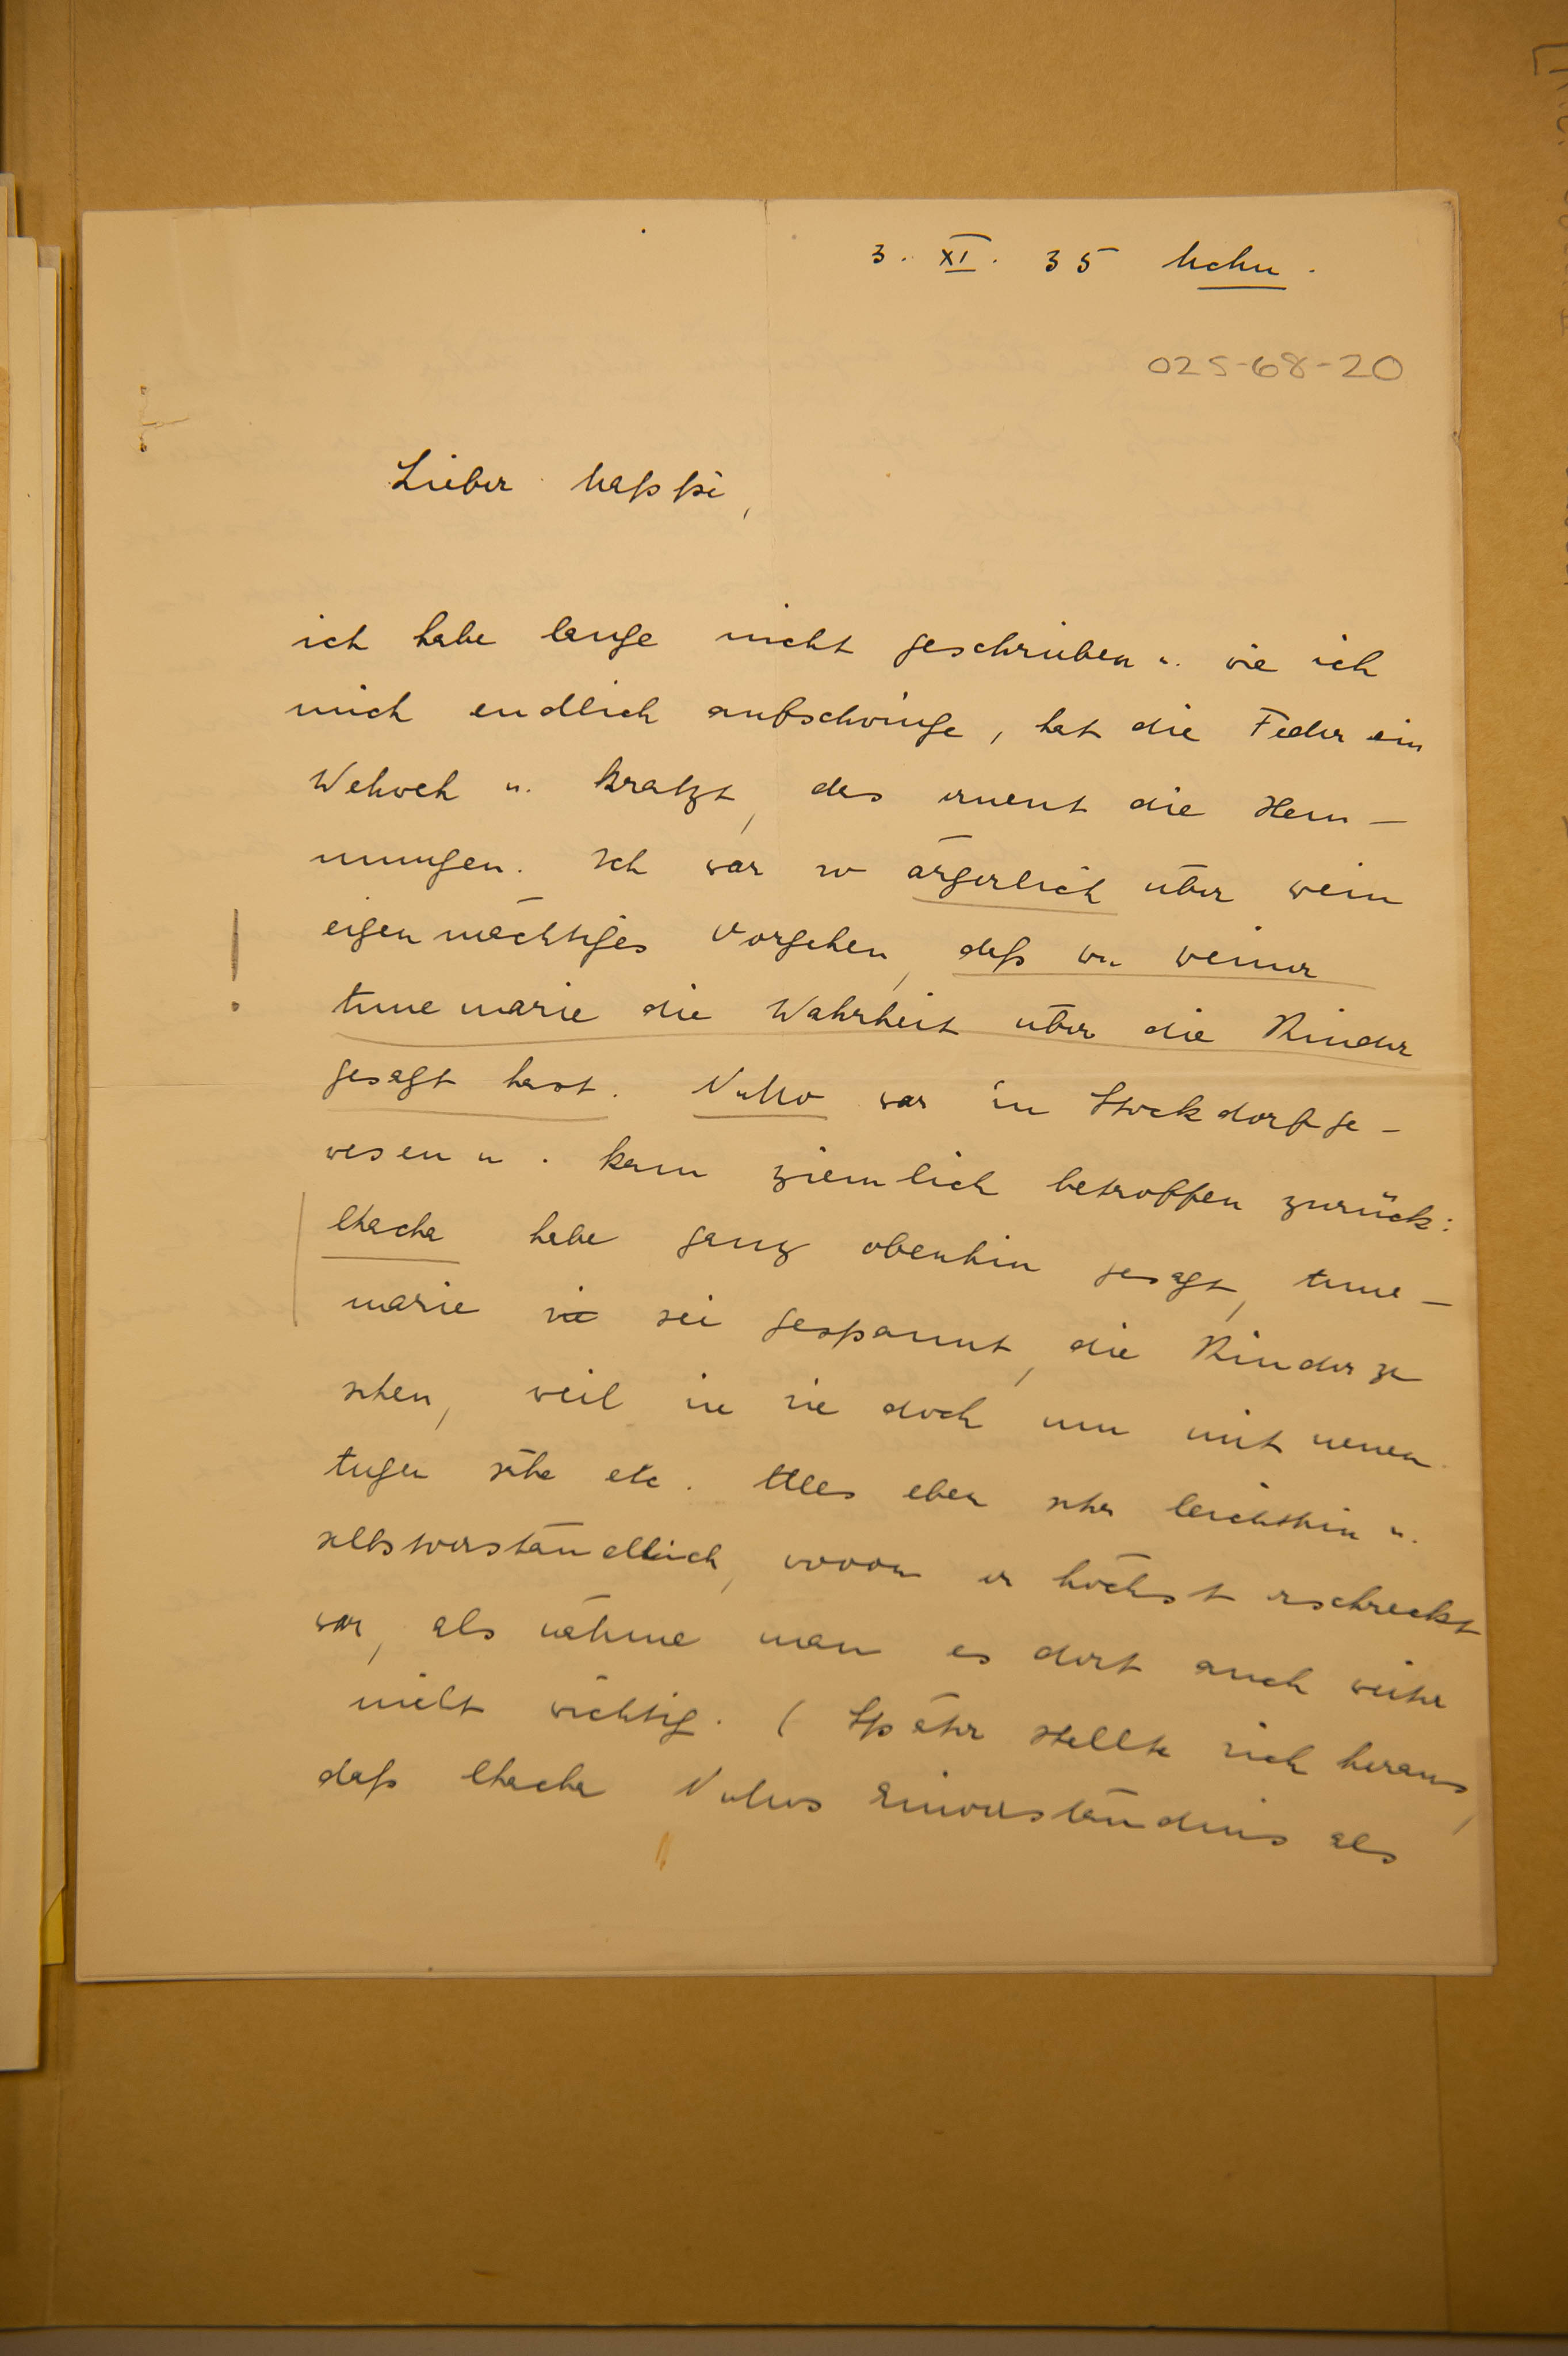 3. XI. 35 Mchn.
025-68-20
Lieber Mappi,
ich habe lange nicht geschrieben u. wie ich
mich endlich aufschwinge, hat die Feder ein
Wehweh u. kratzt, das erneut die Hem-
mungen. Ich war so ärgerlich über mein
eigenmächtiges Vorgehen, daß
Annemarie die Wahrheit über die Kinder
gesagt hast. war in Stockdorf ge-
wesen u. kam ziemlich betroffen zurück:
Chacha habe ganz obenhin gesagt, Anne-
marie sie sei gespannt, die Kinder zu
sehen, weil sie sie doch nun mit neuen
Augen sähe etc. Alles eben sehr leichthin u.
selbstverständlich, wovon er höchst erschreckt
war, als nähme man es dort auch weiter
nicht wichtig. (Später stellte sich heraus,
daß Chacha Einverständnis als